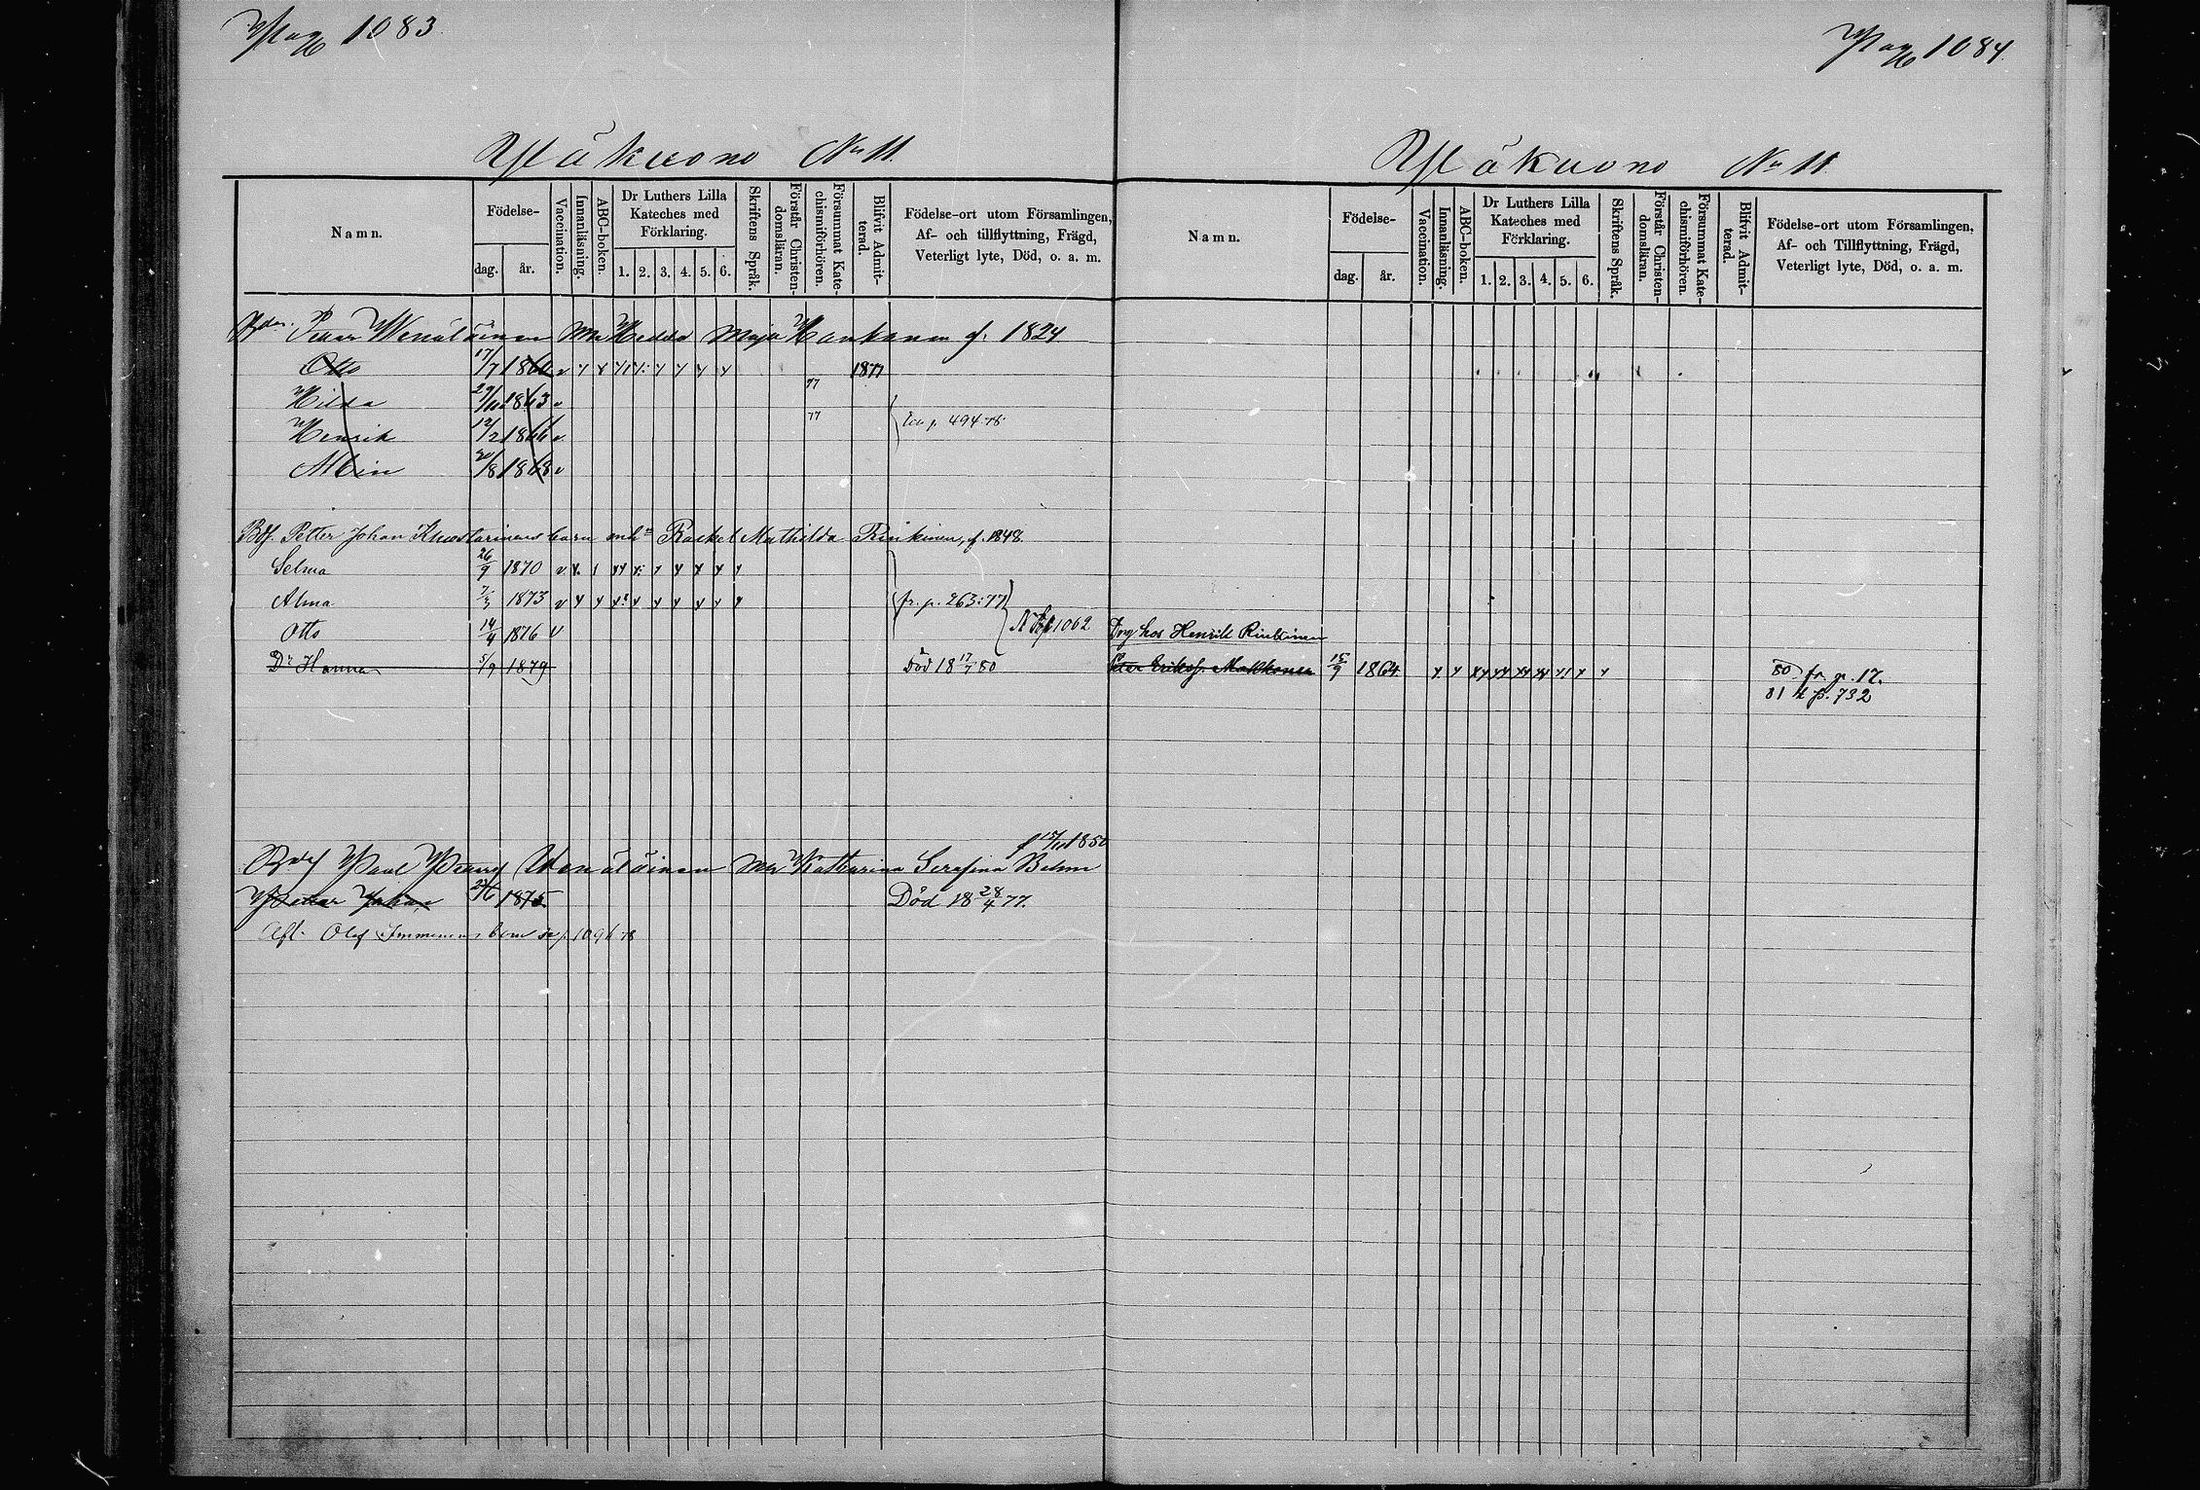 Pag 1083
Pag 1084
Yläkuono No 11.
Yläkuono No 11.
Namn.
Födelse-
dag. år.
Vaccination.
Innanläsning.
ABC-boken.
Dr Luthers Lilla Kateches med Förklaring.
1. 2. 3. 4. 5. 6.
Skriftens Språk.
Förstår Christendomsläran.
Försummat Katechismiförhören.
Blifvit Admitterad.
Födelse-ort utom Församlingen,
Af- och tillflyttning, Frägd,
Veterligt lyte, Död, o. a. m.
Namn.
Födelse-
dag. år.
Vaccination.
Innanläsning.
ABC-boken.
Dr Luthers Lilla Kateches med Förklaring.
1. 2. 3. 4. 5. 6.
Skriftens Språk.
Förstår Christendomsläran.
Försummat Katechismiförhören.
Blifvit Admitterad.
Födelse-ort utom Församlingen,
Af- och Tillflyttning, Frägd,
Veterligt lyte, Död, o. a. m.
Wenäläinen Hedda Maja Hankanen f. 1824
Otto 17/7 1860 1877
Hilda 1863 v 77
Henrik 12/2 1866 v 77 p. 494.78
Albin 1868 v
Petter Johan barn Rackel Mathilda Rinkinen, f. 1848
Selma 26/9 1870
Alma 1873 fr. p. 263:77
Otto 14/4 1876 v 1062
Dr Hanna 5/9 1879 Död 18 17/7 80
Drg hos Henrik Rinkinen
Erikss. Makkonen 15/9 1864 80 fr. p. 17.
81 p. 732
f 1850
Paul Wenäläinen Katharina Serafina Behm
Petter Johan 1875 Död 18 28/4 77.
Afl. Olof Immonens barn p. 1096 78